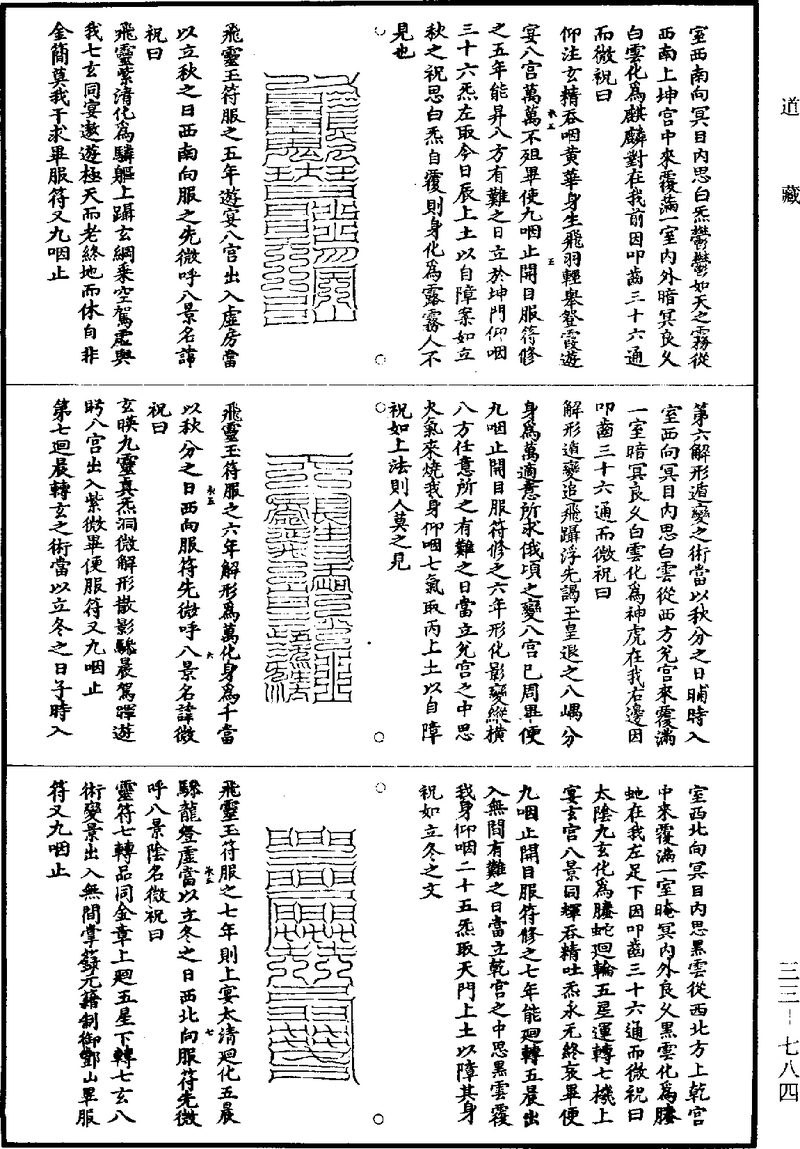 道藏
室西南向冥目内思白炁鬱鬱如天之霧從
西南上坤宫中來覆滿一室内外暗冥良久
白雲化為麒麟對在我前因叩齒三十六通
而微祝曰
仰注玄精吞咽黄華身生飛羽輕舉登霞遊
宴八宫萬萬不殂畢便九咽止開目服符修
之五年能昇八方有難之日立於坤門仰咽
三十六炁左取今日辰上土以自障案如立
秋之祝思白炁自覆則身化為露霧人不
見也
飛靈玉符服之五年遊宴八宫出入虛房當
以立秋之日西南向服之先微呼八景名諱
祝曰
飛靈紫清化為驎軀上躡玄綱乘空駕虛與
我七玄同宴遨遊極天而老終地而休自非
金簡莫我干求畢服符又九咽止
第六解形遁變之術當以秋分之日晡時入
室西向冥目内思白雲從西方兊宫來覆滿
一室暗冥良久白雲化為神虎在我右邊因
叩齒三十六通而微祝曰
解形遁變追飛躡浮先謁玉皇退之八嵎分
身為萬適意所求俄頃之變八宫已周畢便
九咽止開目服符修之六年形化影變縱橫
八方任意所之有難之日當立兊宫之中思
火氣來燒我身仰咽七氣取丙上土以自障
祝如上法則人莫之見
飛靈玉符服之六年解形為萬化身為千當
以秋分之日西向服符先微呼八景名諱微
祝曰
玄暎九靈真炁洞微解形散影驂晨駕暉遊
眄八宫出入紫微畢便服符又九咽止
第七迴晨轉玄之術當以立冬之日子時入
室西北向冥目内思黑雲從西北方上乾宫
中來覆滿一室晻冥内外良久黑雲化為螣
虵在我左足下因叩齒三十六通而微祝曰
太陰九玄化為螣蛇迴輪五星運轉七機上
宴玄宫八景同輝吞精吐炁永无終哀畢便
九咽止開目服符修之七年能迴轉五晨出
入無間有難之日當立乾宫之中思黑雲覆
我身仰咽二十五炁取天門上土以障其身
祝如立冬之文
飛靈玉符服之七年則上宴太清迴化五晨
驂龍登虛當以立冬之日西北向服符先微
呼八景陰名微祝曰
靈符七轉品同金章上迴五星下轉七玄八
術變景出入無間掌錄元籍制御酆山畢服
符又九咽止
三三-七八四